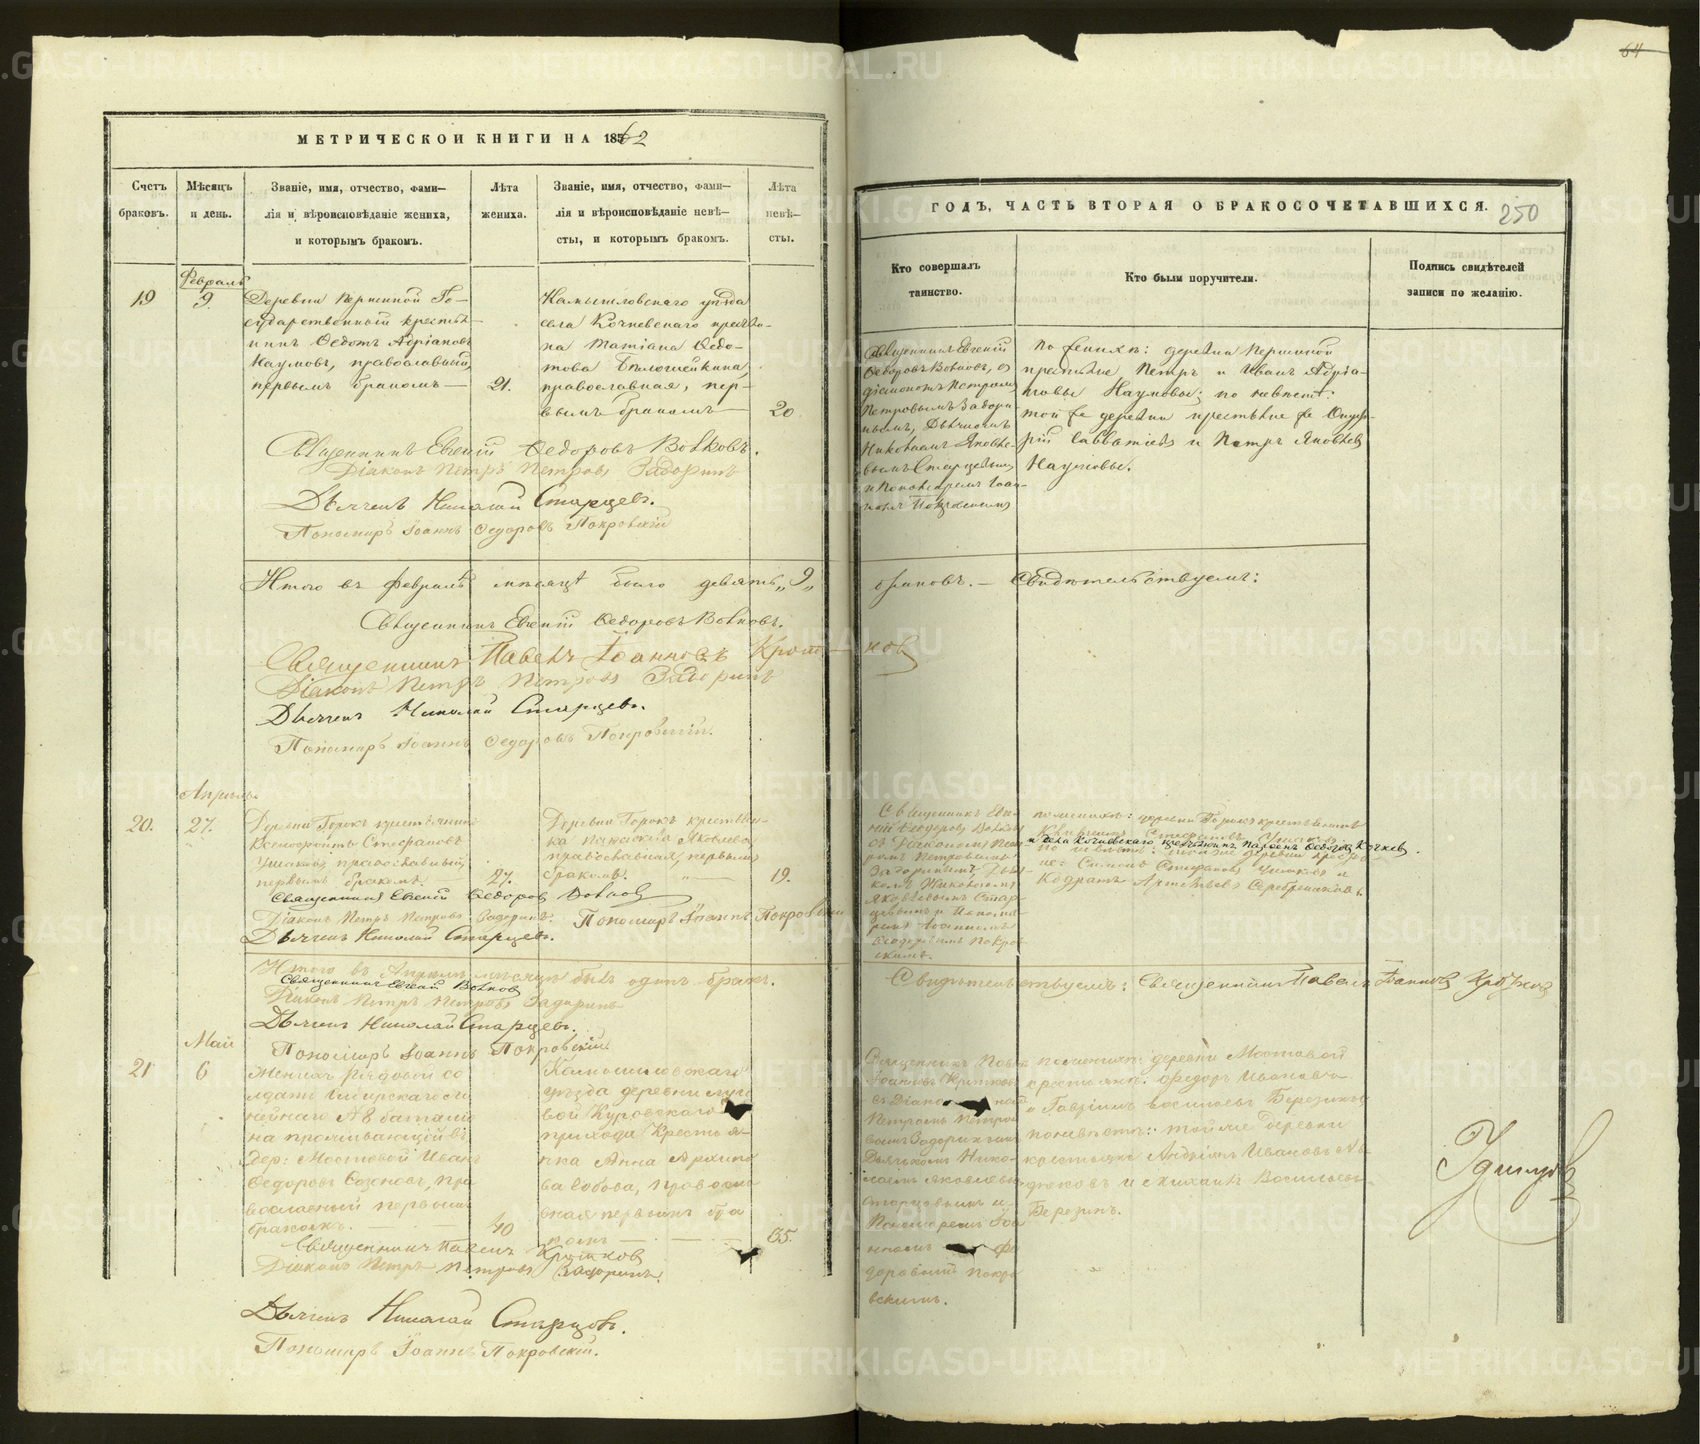 МЕТРИЧЕСКОЙ КНИГИ НА 1862
Счетъ браковъ.
Мѣсяцъ и день.
Званіе, имя, отчество, фами-
лія и вѣроисповѣданіе жениха,
и которымъ бракомъ.
Лѣта
жениха.
Званіе, имя, отчество, фами-
лія и вѣроисповѣданіе невѣ-
сты, и которымъ бракомъ.
Лѣта
невѣ-
сты.
Февраль
19
9.
Деревни Першиной Го-
сударственный крестья-
нинъ Ѳедотъ Адріановъ
Наумовъ, православный,
первымъ бракомъ
21.
Камышловскаго уѣзда
села Кочневскаго крестья-
на Татіана Ѳедо-
това Бѣлошейкина,
православная, пер-
вымъ бракомъ
20
Священникъ Евгеній Ѳедоровъ Волковъ.
Діаконъ Петръ Петровъ Задоринъ
Дьячекъ Николай Старцевъ.
Пономарь Іоаннъ Ѳедоровъ Покровскій
Итого въ февралѣ мѣсяцѣ было девять „9„
Священникъ Евгеній Ѳедоровъ Волковъ.
Священникъ Павелъ Іоанновъ
Діаконъ Петръ Петровъ Задоринъ
Дьячекъ Николай Старцевъ.
Пономарь Іоаннъ Ѳедоровъ Покровскій.
Апрѣль
20.
27.
Деревни Горокъ крестьянинъ
Ксенофонтъ Стефановъ
Ушаковъ, православный,
первымъ бракомъ.
27.
Деревни Горокъ крестьян-
ка Яковлева
православная, первымъ
бракомъ.
19.
Священникъ Евгеній Ѳедоровъ Волковъ
Діаконъ Петръ Петровъ Задоринъ. Пономарь Іоаннъ Покровскій
Дьячекъ Николай Старцевъ.
Итого въ Апрѣлѣ мѣсяцѣ былъ одинъ бракъ.
Священникъ Евгеній Волковъ
Діаконъ Петръ Петровъ Задоринъ
Дьячекъ Николай Старцевъ.
Пономарь Іоаннъ Покровскій.
Май
21
6
Женихъ рядовой со
лдатъ Сибирскаго ли
нейнаго №8 баталіо
на проживающій въ
дер: Мостовой Иванъ
Ѳедоровъ Созоновъ, пра
вославный первымъ
бракомъ.
40
Камышловскаго
уѣзда деревни
вой Куровскаго
прихода Крестья-
нка Анна Архипо
ва православ
ная первымъ бра
комъ
35.
Священникъ Павелъ
Діаконъ Петръ Петровъ Задоринъ.
Дьячекъ Николай Старцовъ.
Пономарь Іоаннъ Покровскій.
64
ГОДЪ, ЧАСТЬ ВТОРАЯ О БРАКОСОЧЕТАВШИХСЯ.
250
Кто совершалъ
таинство.
Кто были поручители.
Подпись свидѣтелей
записи по желанію.
Священникъ Евгеній
Ѳедоровъ Волковъ, съ
діакономъ Петромъ
Петровымъ Задори-
нымъ, Дьячкомъ
Николаемъ Яковле-
вымъ Старцевымъ
и Пономаремъ Іоан-
номъ Покровскимъ
По женихѣ: деревни Першиной
крестьяне Петръ и Иванъ Адріа-
новы Наумовы; по невѣстѣ:
той же деревни крестьяне же
Савватіевъ и Петръ Яковлевъ
Наумовы.
браковъ. — Свидѣтельствуемъ:
ковъ
Священникъ Евге-
ній Ѳеодоровъ Волковъ
съ Діакономъ Пет
ромъ Петровымъ
Задоринымъ, Дья-
комъ Николаемъ
Яковлевымъ Стар-
цевымъ и Понома-
ремъ Іоанномъ
Ѳеодоровымъ Покро
вскимъ.
по женихѣ: деревни Горокъ крестьянинъ
Стефановъ Ушаковъ
и села Кочневскаго крестьянинъ Ѳедоровъ Кочневъ.
по невѣстѣ: той же деревни крестья
не: Симонъ Стефановъ Ушаковъ и
Кодратъ Артемьевъ Серебрениковъ.
Свидѣтельствуемъ: Священникъ Павелъ Іоанновъ
Священникъ Павелъ
Іоанновъ
съ Діакономъ
Петромъ Петро
вымъ Задоринымъ
Дьячкомъ Нико-
лаемъ Яковлевы
Старцовымъ и
Пономаремъ Іоа
нномъ Ѳе
доровымъ Покро
вскимъ.
по женихѣ: деревни Мостовой
крестьяне: Федоръ Ивановъ
и Гавріилъ Васильевъ Березинъ
по невѣстѣ: той же деревни
крестьяне Андріянъ Ивановъ
и Михаилъ Васильевъ
Березинъ.
METRIKI.GASO-URAL.RU